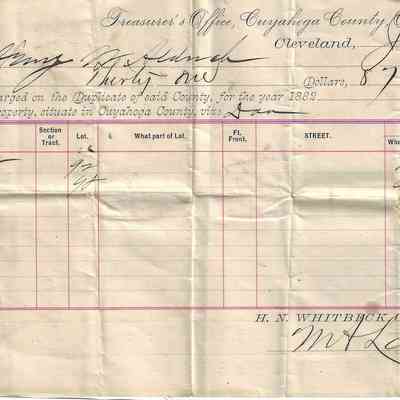 Treasurer's Office, Cuyahoga County, O
Cleveland,
Henry W Aldrich
Thirty one Dollars, 87
arged on the Duplicate of said County, for the year 1882
roperty, situate in Cuyahoga County, viz:
Section or Tract. Lot. What part of Lot. Ft. Front. STREET. Whe
92
98
H. N. WHITBECK, C